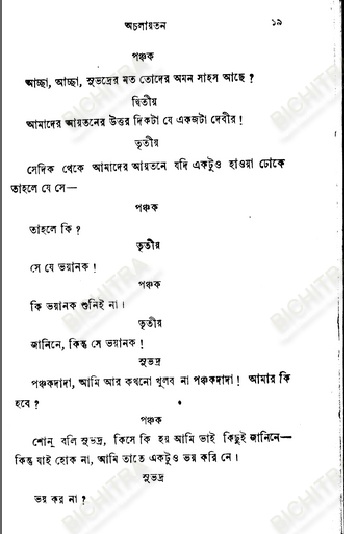 অচলায়তন ১৯
পঞ্চক
আচ্ছা, আচ্ছা, সুভদ্রের মত তোদের অমন সাহস আছে ?
দ্বিতীয়
আমাদের আয়তনের উত্তর দিকটা যে একজটা দেবীর !
তৃতীয়
সেদিক থেকে আমাদের আয়তনে যদি একটুও হাওয়া ঢোকে
তাহলে যে সে—
পঞ্চক
তাহলে কি ?
তৃতীয়
সে যে ভয়ানক !
পঞ্চক
কি ভয়ানক শুনিই না ।
তৃতীয়
জানিনে, কিন্তু সে ভয়ানক !
সুভদ্র
পঞ্চকদাদা, আমি আর কখনো খুলব না পঞ্চকদাদা ! আমার কি
হবে ?
পঞ্চক
শোন্ বলি সুভদ্র, কিসে কি হয় আমি ভাই কিছুই জানিনে—
কিন্তু যাই হোক না, আমি তাতে একটুও ভয় করি নে ।
সুভদ্র
ভয় কর না ?
BICHITRA